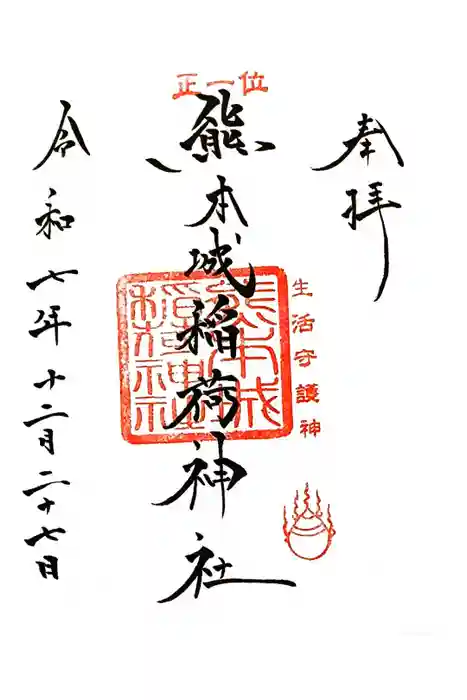 奉拝
生活守護神
正一位
熊本城稲荷神社
熊本城稲荷神社
令和七年十二月二十七日